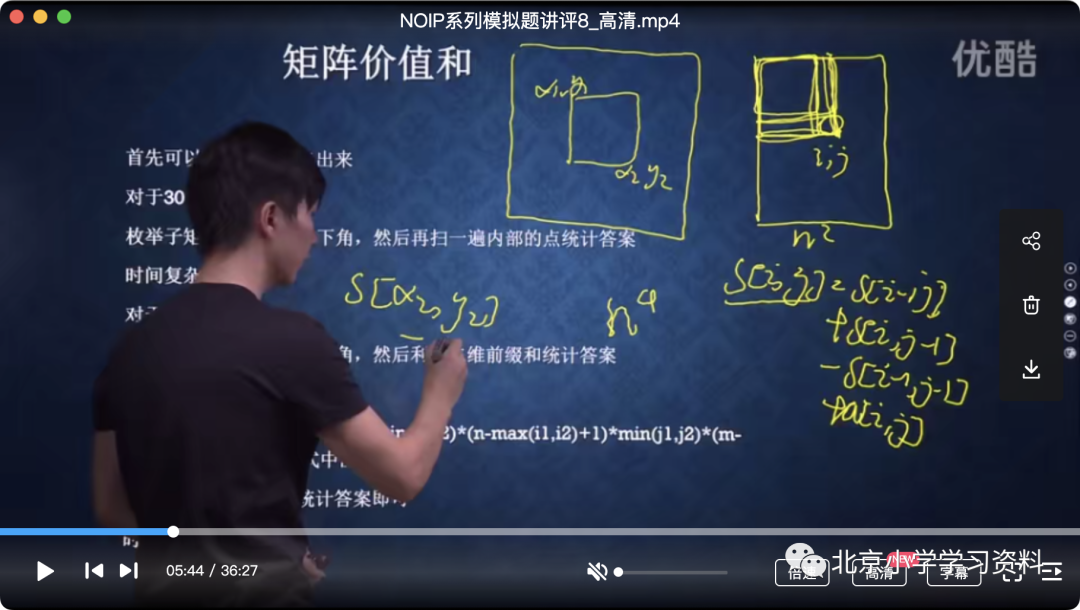 NOIP系列模拟题讲评8_高清.mp4
矩阵价值和
优酷
首先可以
出来
对于30
枚举子矩
下角，然后再扫一遍内部的点统计答案
时间复杂
对于
角，然后利
维前缀和统计答案
2)*(n-max(i1,i2)+1)*min(j1,j2)*(m-
式中
统计答案即可
的
x2,y2
i,j
n²
S[x2,y2]
n⁴
S[i,j]=S[i-1,j]
+S[i,j-1]
-S[i-1,j-1]
+a[i,j]
05:44 / 36:27
倍速
高清
NEW
字幕
北京小学学习资料